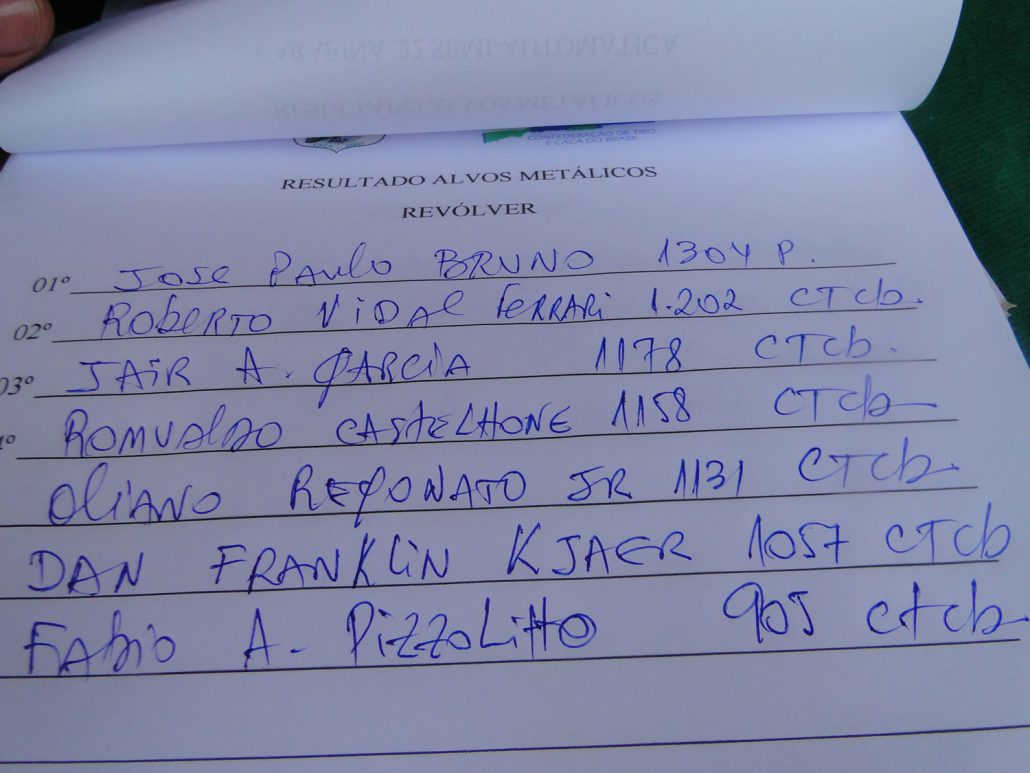 CARABINA .22 SEMI-AUTOMÁTICA
RESULTADO ALVOS METÁLICOS
CONFEDERAÇÃO DE TIRO
E CAÇA DO BRASIL
RESULTADO ALVOS METÁLICOS
REVÓLVER
01º JOSE PAULO BRUNO 1304 P.
02º ROBERTO VIDAL FERRARI 1.202 CTCb.
03º JAIR A. GARCIA 1178 CTCb.
º ROMUALDO CASTELHONE 1158 CTCb
OLIANO REGONATO JR 1131 CTCb.
DAN FRANKLIN KJAER 1057 CTCb
FABIO A. PIZZOLITTO 905 CTCb